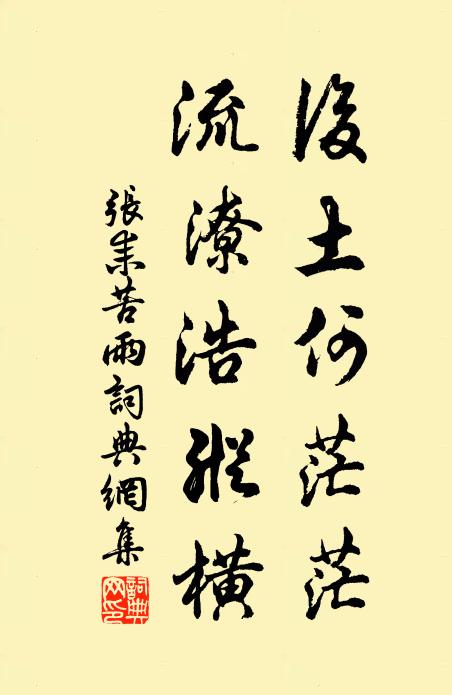 後土何茫茫
流潦浩縱橫
張耒苦雨詞典網集
詞典網印